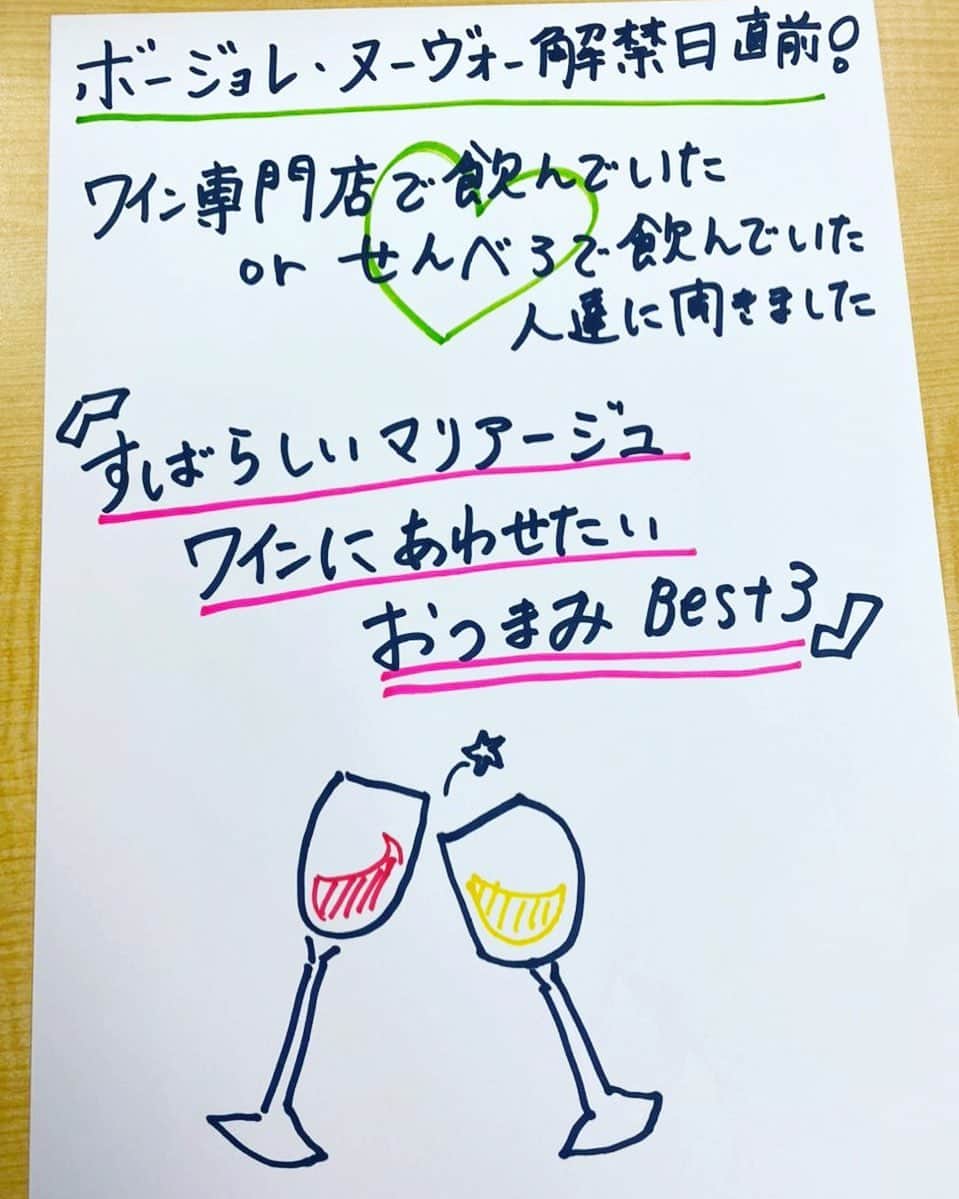 ボージョレ・ヌーヴォー解禁日直前!
ワイン専門店で飲んでいた
or せんべろで飲んでいた
人達に聞きました
『すばらしいマリアージュ
ワインにあわせたい
おつまみ Best3』